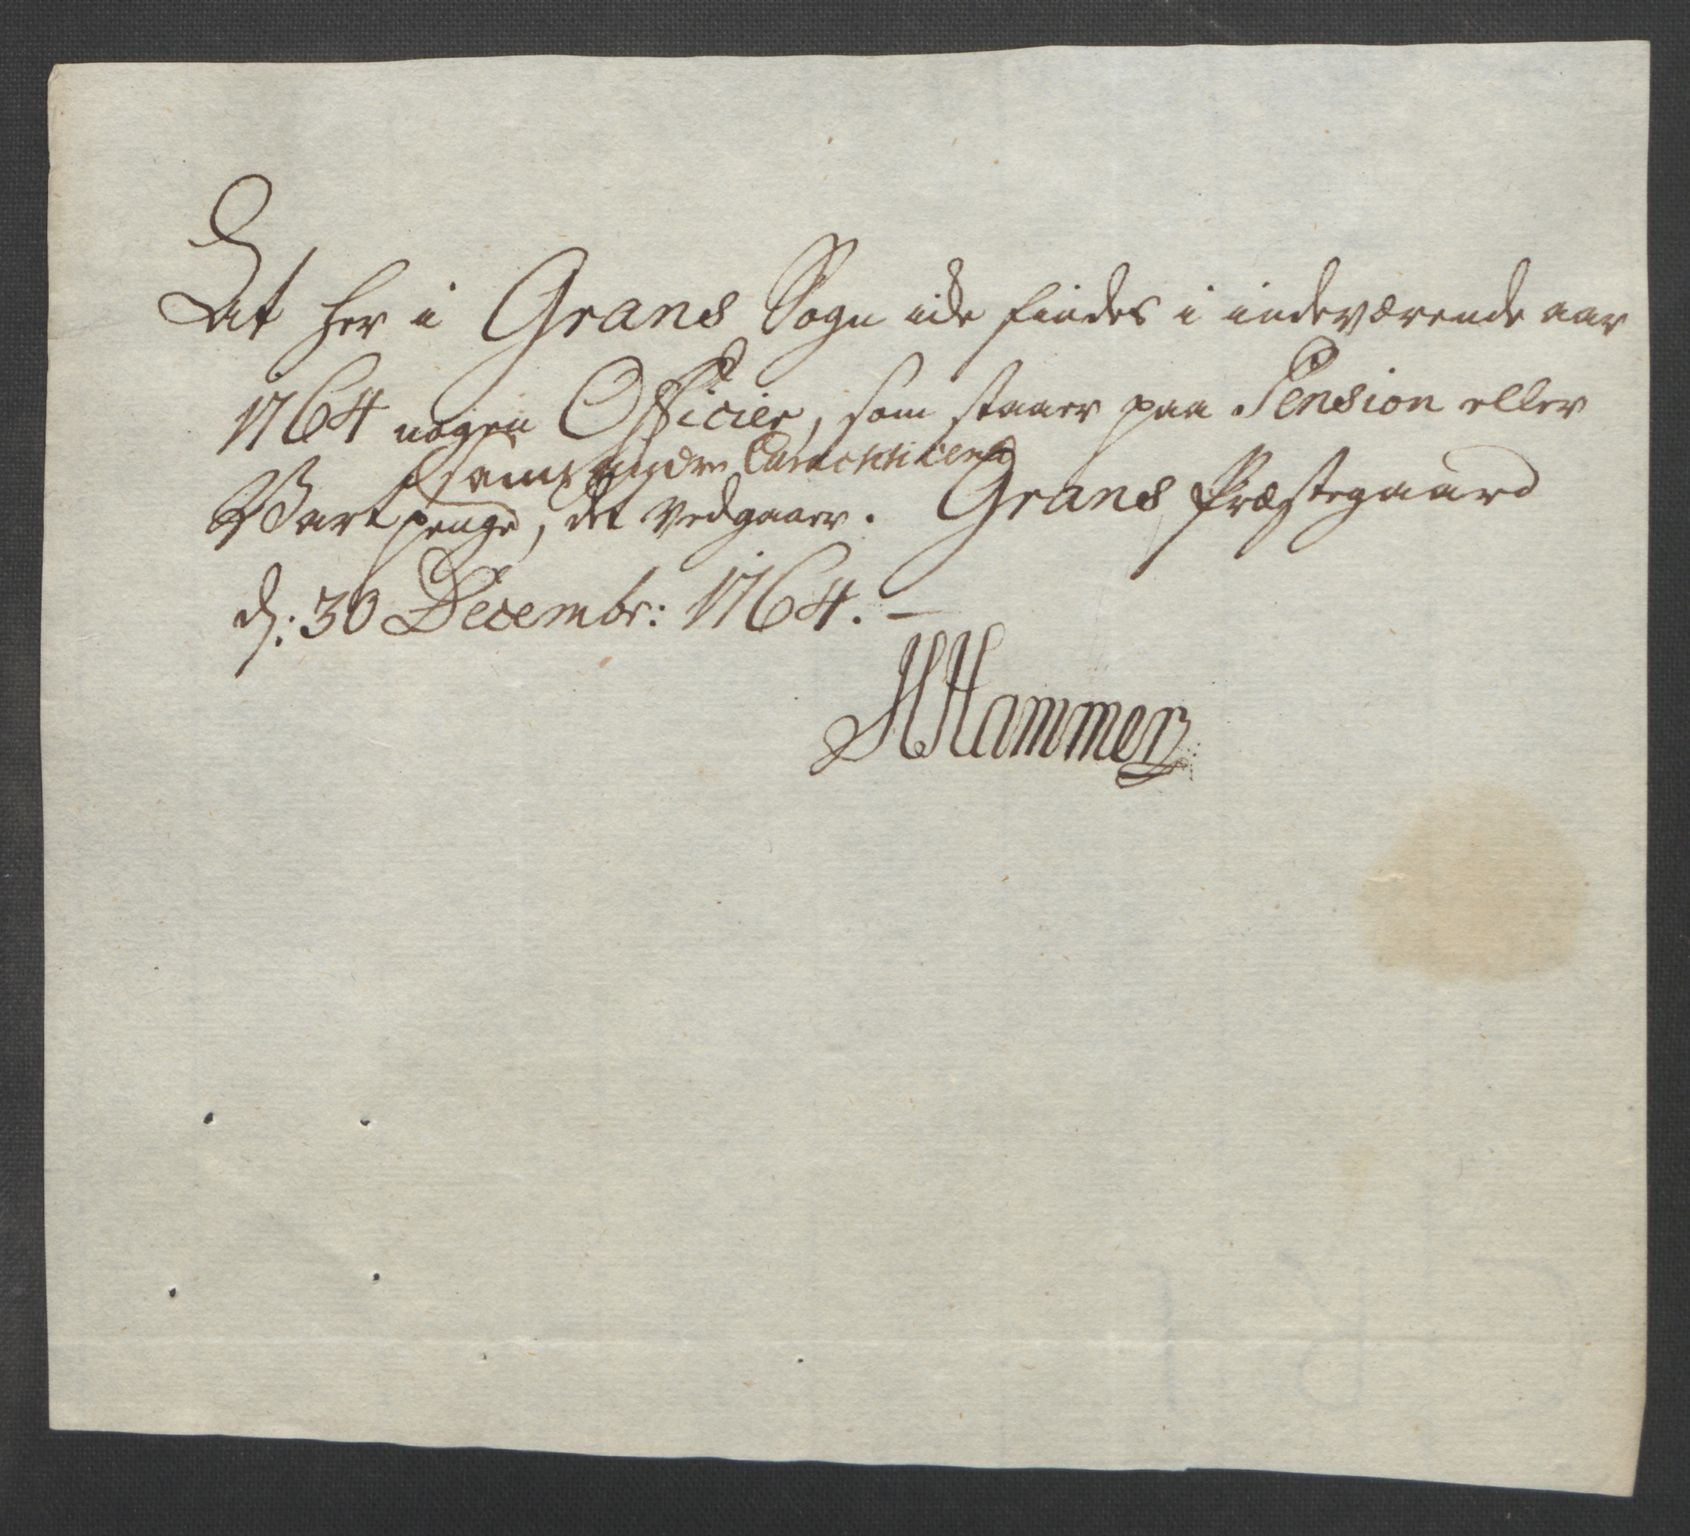 At her i Grans Sogn icke findes i indeværende aar
1764 nogen Officier, som staaer paa Pension eller
samt andre
Vartpenge, det vedgaaer. Grans Præstegaard
d: 30 Decembr: 1764. –
HHammer